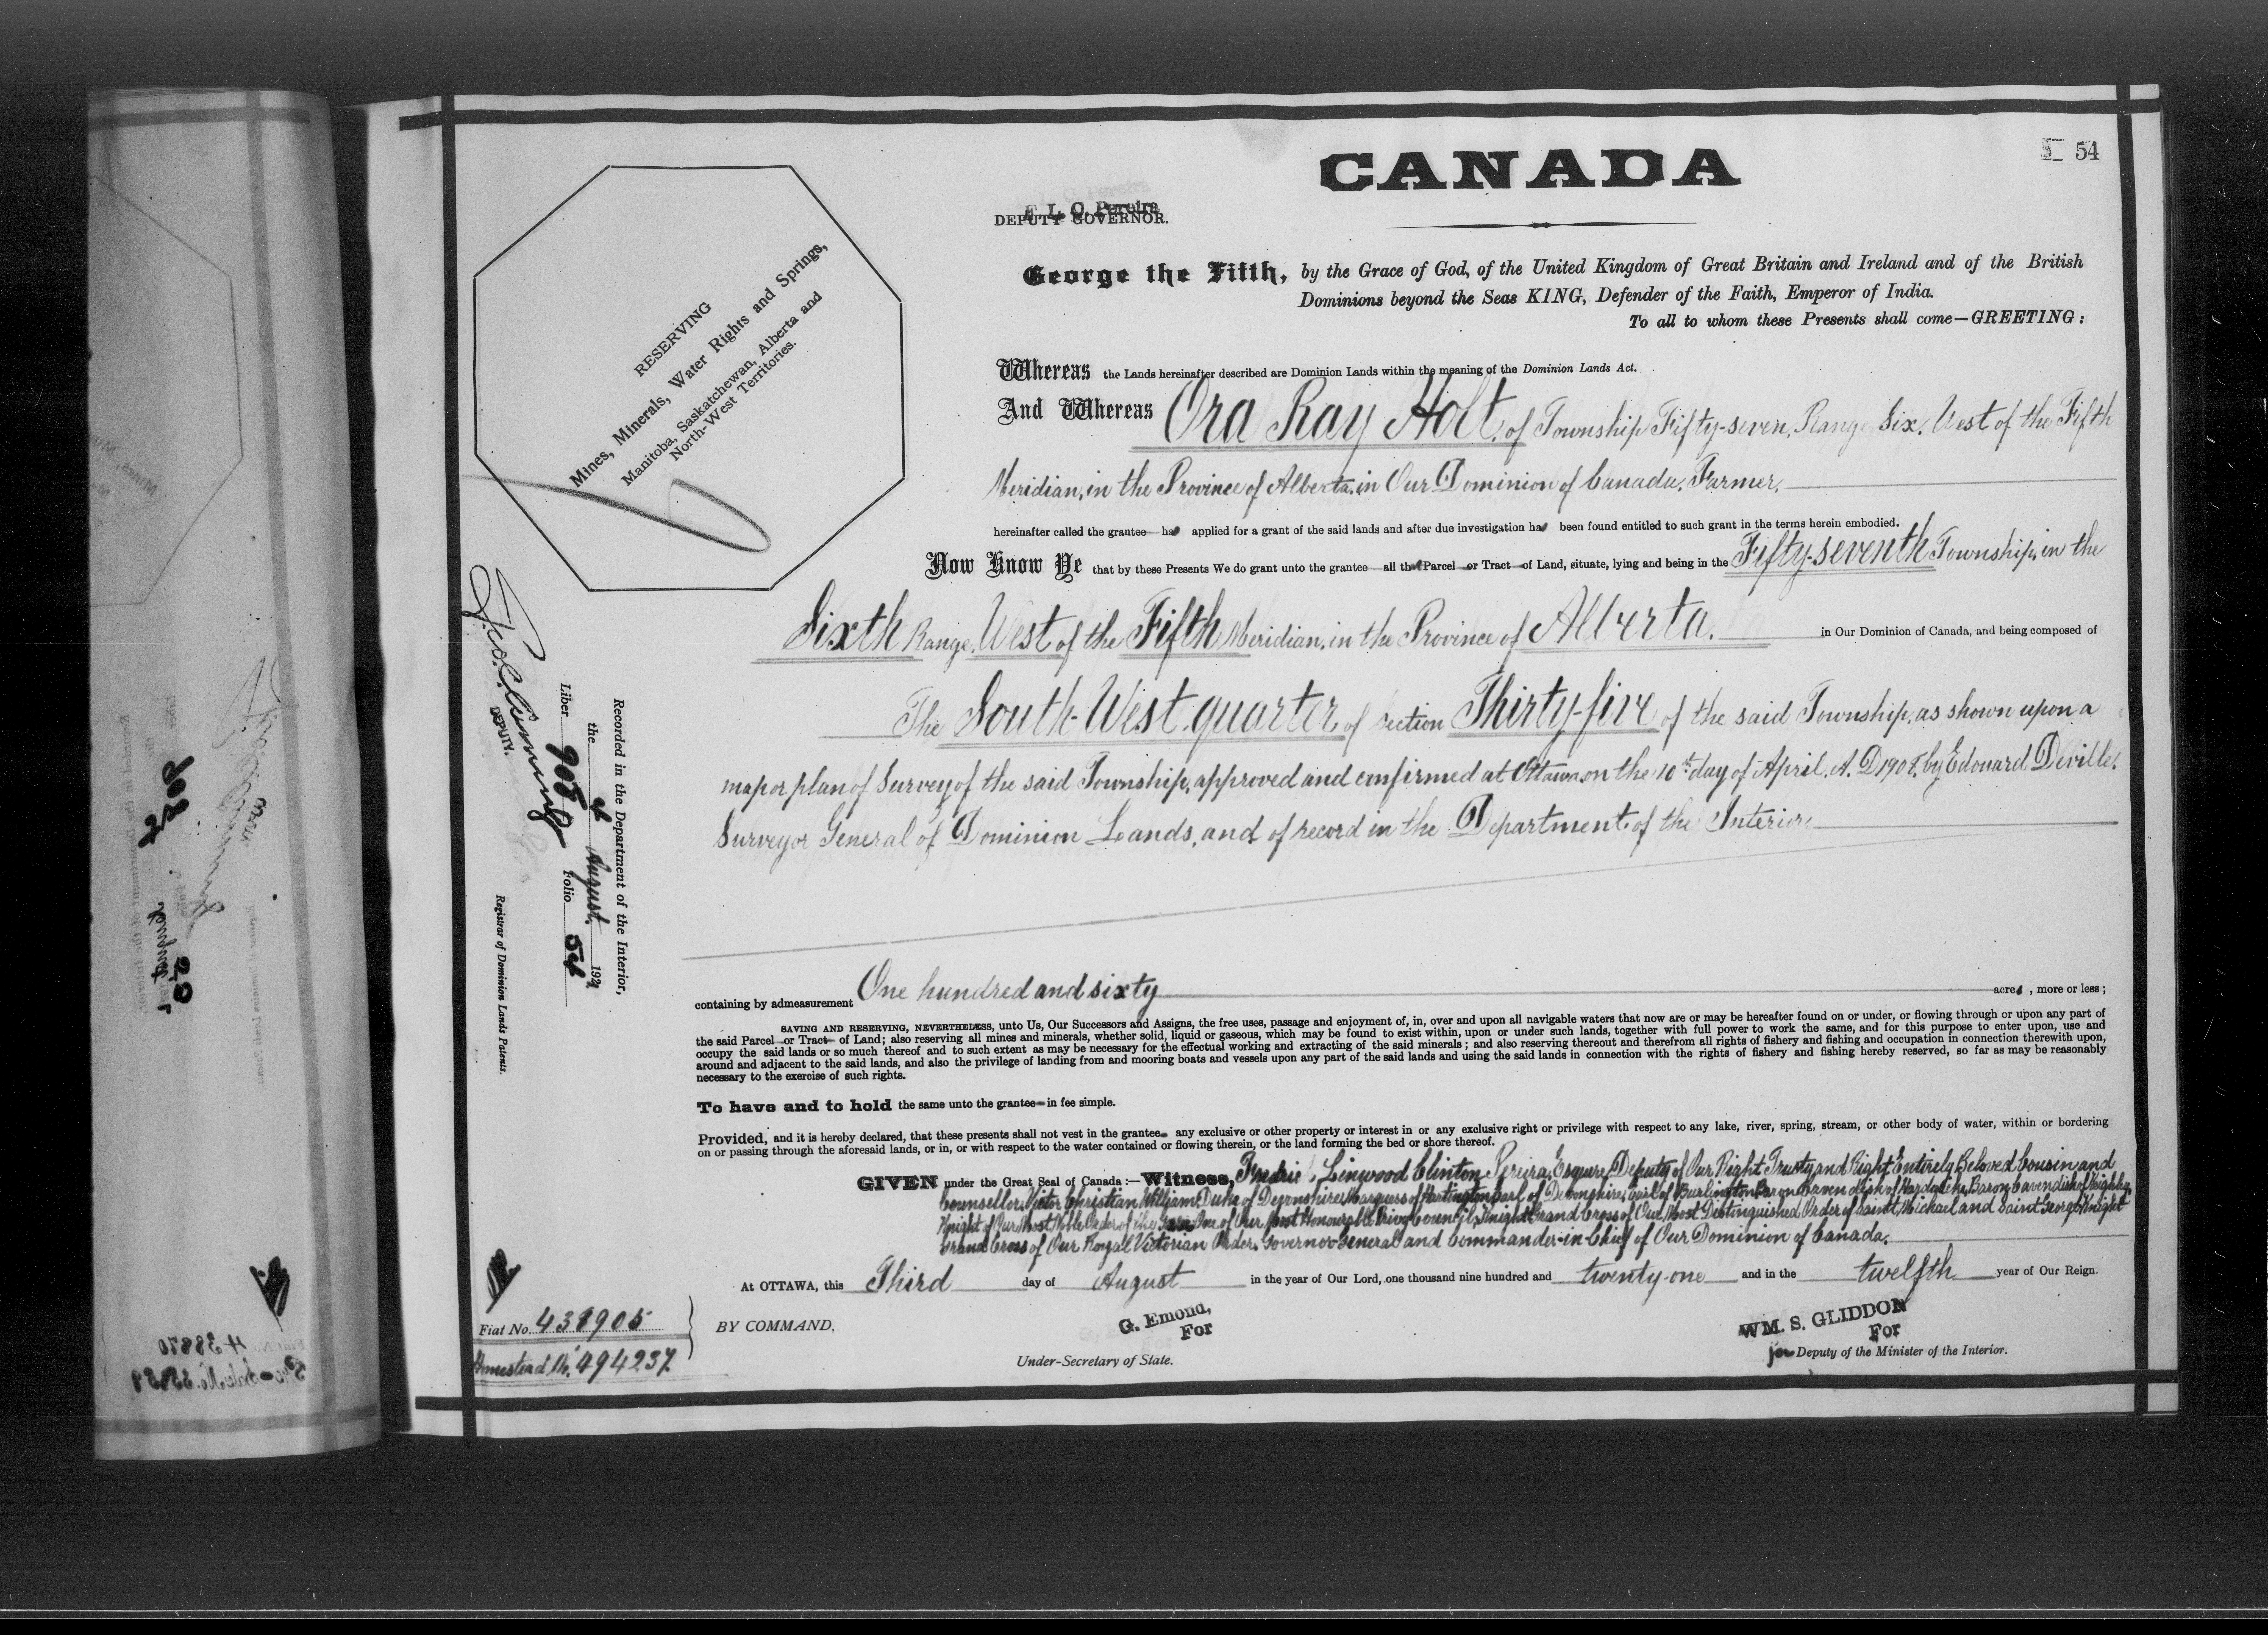 54
CANADA
F. L. C. Pereira
DEPUTY GOVERNOR.
George the Fifth, by the Grace of God, of the United Kingdom of Great Britain and Ireland and of the British
Dominions beyond the Seas KING, Defender of the Faith, Emperor of India.
To all to whom these Presents shall come—GREETING:
RESERVING
Mines, Minerals, Water Rights and Springs,
Manitoba, Saskatchewan, Alberta and
North-West Territories.
Whereas the Lands hereinafter described are Dominion Lands within the meaning of the Dominion Lands Act.
And Whereas Ora Ray Holt, of Township Fifty-seven, Range Six, West of the Fifth
Meridian, in the Province of Alberta, in Our Dominion of Canada, Farmer,
hereinafter called the grantee ha applied for a grant of the said lands and after due investigation ha been found entitled to such grant in the terms herein embodied.
Now Know Ye that by these Presents We do grant unto the grantee all th Parcel or Tract of Land, situate, lying and being in the Fifty-seventh Township, in the
Sixth Range, West of the Fifth Meridian, in the Province of Alberta. in Our Dominion of Canada, and being composed of
The South-West quarter of section Thirty-five of the said Township, as shown upon a
map or plan of Survey of the said Township, approved and confirmed at Ottawa, on the 10th day of April, A. D. 1908, by Edouard Deville,
Surveyor General of Dominion Lands, and of record in the Department of the Interior.
containing by admeasurement One hundred and sixty acres, more or less;
SAVING AND RESERVING, NEVERTHELESS, unto Us, Our Successors and Assigns, the free uses, passage and enjoyment of, in, over and upon all navigable waters that now are or may be hereafter found on or under, or flowing through or upon any part of
the said Parcel or Tract of Land; also reserving all mines and minerals, whether solid, liquid or gaseous, which may be found to exist within, upon or under such lands, together with full power to work the same, and for this purpose to enter upon, use and
occupy the said lands or so much thereof and to such extent as may be necessary for the effectual working and extracting of the said minerals; and also reserving thereout and therefrom all rights of fishery and fishing and occupation in connection therewith upon,
around and adjacent to the said lands, and also the privilege of landing from and mooring boats and vessels upon any part of the said lands and using the said lands in connection with the rights of fishery and fishing hereby reserved, so far as may be reasonably
necessary to the exercise of such rights.
To have and to hold the same unto the grantee in fee simple.
Provided, and it is hereby declared, that these presents shall not vest in the grantee any exclusive or other property or interest in or any exclusive right or privilege with respect to any lake, river, spring, stream, or other body of water, within or bordering
on or passing through the aforesaid lands, or in, or with respect to the water contained or flowing therein, or the land forming the bed or shore thereof.
GIVEN under the Great Seal of Canada:—Witness, Linwood Clinton Pereira, Esquire, Deputy of Our Right Trusty and Right Entirely Beloved Cousin and
Counsellor, Victor Christian William, Duke of Devonshire, Marquess of Hartington, Earl of Devonshire, Earl of Burlington, Baron Cavendish of Hardwicke, Baron Cavendish of Keighley,
Knight of Our Most Noble Order of the Garter, One of Our Most Honourable Privy Council, Knight Grand Cross of Our Most Distinguished Order of Saint Michael and Saint George, Knight
Grand Cross of Our Royal Victorian Order, Governor General and Commander-in-Chief of Our Dominion of Canada.
At OTTAWA, this Third day of August in the year of Our Lord, one thousand nine hundred and twenty-one and in the twelfth year of Our Reign.
BY COMMAND,
G. Emond,
For
Under-Secretary of State.
WM. S. GLIDDON
For
for Deputy of the Minister of the Interior.
Recorded in the Department of the Interior,
the 4 August 1921
Liber 905 Folio 54
DEPUTY.
Registrar of Dominion Lands Patents.
Fiat No. 438905
Homestead No. 494237.